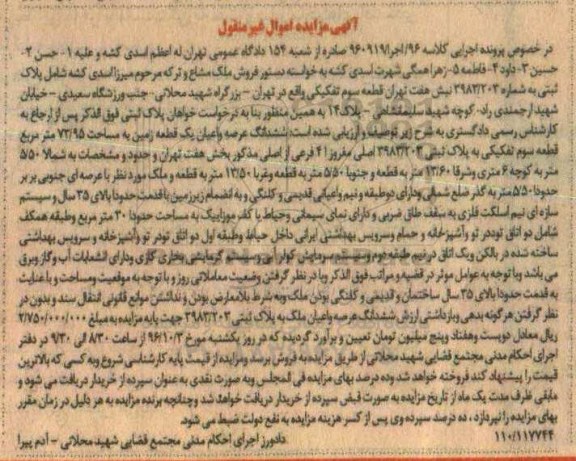 آگهی مزایده اموال غیر منقول
در خصوص پرونده اجرایی کلاسه ۹۶/اجرا/۹۶۰۹۱۹ صادره از شعبه ۱۵۴ دادگاه عمومی تهران له اعظم اسدی کشه و علیه ۱- حسن ۲-
حسین ۳- داود ۴- فاطمه ۵- زهرا همگی شهرت اسدی کشه به خواسته دستور فروش ملک مشاع و ترکه مرحوم میرزا اسدی کشه شامل پلاک
ثبتی به شماره ۳۹۸۳/۲۰۳ نبش هفت تهران قطعه سوم تفکیکی واقع در تهران - بزرگراه شهید محلاتی- جنب ورزشگاه سعیدی - خیابان
شهید ارجمندی راد- کوچه شهید سلیمقشاهی - پلاک ۱۴ به همین منظور بنا به درخواست خواهان پلاک ثبتی فوق الذکر پس از ارجاع به
کارشناس رسمی دادگستری به شرح زیر توصیف و ارزیابی شده است: ششدانگ عرصه واعیان یک قطعه زمین به مساحت ۷۲/۹۵ متر مربع
قطعه سوم تفکیکی به پلاک ثبتی ۳۹۸۳/۲۰۳ اصلی مفروز ۴۱ فرعی از اصلی مذکور بخش هفت تهران و حدود و مشخصات به شمالا ۵/۵۰
متر به کوچه ۶ متری و شرقا ۱۳/۶۰ متر به قطعه و جنوبا ۵/۵۰ متر به قطعه وغربا ۱۳/۵۰ به قطعه و ملک مورد نظر با عرصه ای جنوبی بر بر
حدودا ۵/۵۰ متر به گذر ضلع شمالی ودارای دوطبقه و نیم واعیانی قدیمی و کلنگی و به انضمام زیرزمین با قدمت حدودا بالای ۳۵ سال و سیستم
سازه ای نیم اسکلت فلزی به سقف طاق ضربی و دارای نمای سیمانی وحیاط با کف موزاییک به مساحت حدودا ۳۰ متر مربع وطبقه همکف
شامل دو اتاق تودر تو وآشپزخانه و حمام وسرویس بهداشتی ایرانی داخل حیاط وطبقه اول دو اتاق تودر تو وآشپزخانه و سرویس بهداشتی
ساخته شده در بالکن ویک اتاق در نیم طبقه دوم وسیستم سرمایش کولر آبی وسیستم گرمایشی بخاری گازی ودارای انشعابات آب وگاز وبرق
می باشد وبا توجه به عوامل موثر در قضیه و مراتب فوق الذکر وبا در نظر گرفتن وضعیت معاملاتی روز و با توجه به موقعیت ومساحت و با عنایت
به قدمت حدودا بالای ۳۵ سال ساختمان و قدیمی و کلنگی بودن ملک وبه شرط بلامعارض بودن و نداشتن موانع قانونی انتقال سند و بدون در
نظر گرفتن هرگونه بدهی وبازداشتی ارزش ششدانگ عرصه واعیان ملک به پلاک ثبتی ۳۹۸۳/۲۰۳ جهت پایه مزایده به مبلغ ۲/۷۵۰/۰۰۰/۰۰۰
ریال معادل دویست وهفتاد وپنج میلیون تومان تعیین و برآورد گردیده که در روز یکشنبه مورخ ۹۶/۱۰/۳ از ساعت ۸/۳۰ الی ۹/۳۰ در دفتر
اجرای احکام مدنی مجتمع قضایی شهید محلاتی از طریق مزایده به فروش برسد ومزایده از قیمت پایه کارشناسی شروع وبه کسی که بالاترین
قیمت را پیشنهاد کند فروخته خواهد شد وده درصد بهای مزایده فی المجلس وبه صورت نقدی به عنوان سپرده از خریدار دریافت می شود و
مابقی ظرف مدت یک ماه از تاریخ مزایده به صورت قبض سپرده از خریدار دریافت خواهد شد وچنانچه برنده مزایده به هر دلیل در زمان مقرر
بهای مزایده را نپردازد ، ده درصد سپرده وی پس از کسر هزینه مزایده به نفع دولت ضبط می شود.
۱۱۰/۱۱۷۷۴۴ دادورز اجرای احکام مدنی مجتمع قضایی شهید محلاتی - آدم پیرا